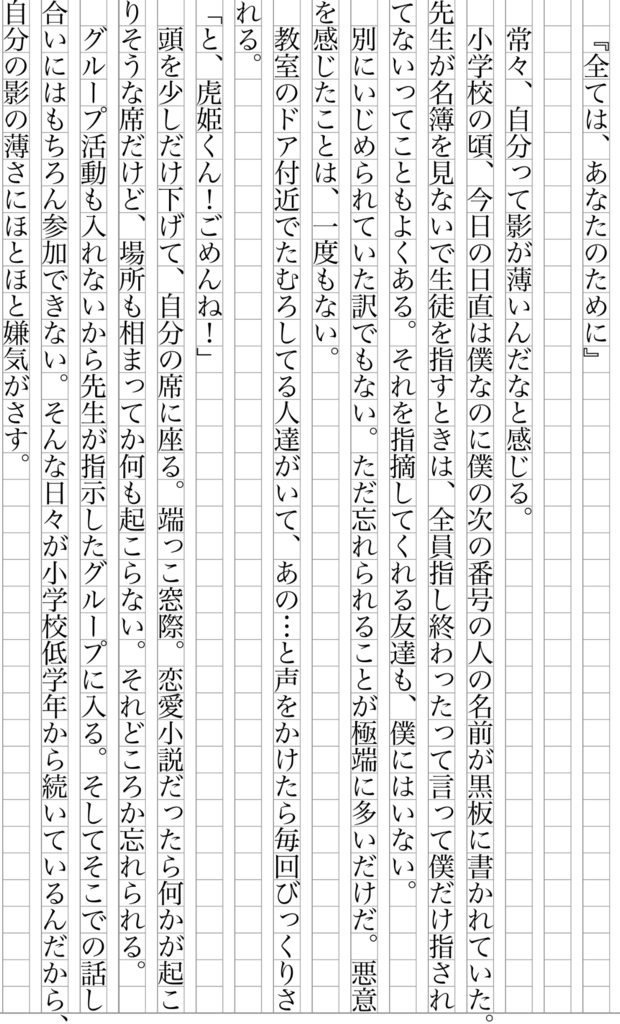 『全ては、あなたのために』
常々、自分って影が薄いんだなと感じる。
小学校の頃、今日の日直は僕なのに僕の次の番号の人の名前が黒板に書かれていた。
先生が名簿を見ないで生徒を指すときは、全員指し終わったって言って僕だけ指され
てないってこともよくある。それを指摘してくれる友達も、僕にはいない。
別にいじめられていた訳でもない。ただ忘れられることが極端に多いだけだ。悪意
を感じたことは、一度もない。
教室のドア付近でたむろしてる人達がいて、あの…と声をかけたら毎回びっくりさ
れる。
「と、虎姫くん！ごめんね！」
頭を少しだけ下げて、自分の席に座る。端っこ窓際。恋愛小説だったら何かが起こ
りそうな席だけど、場所も相まってか何も起こらない。それどころか忘れられる。
グループ活動も入れないから先生が指示したグループに入る。そしてそこでの話し
合いにはもちろん参加できない。そんな日々が小学校低学年から続いているんだから、
自分の影の薄さにほとほと嫌気がさす。